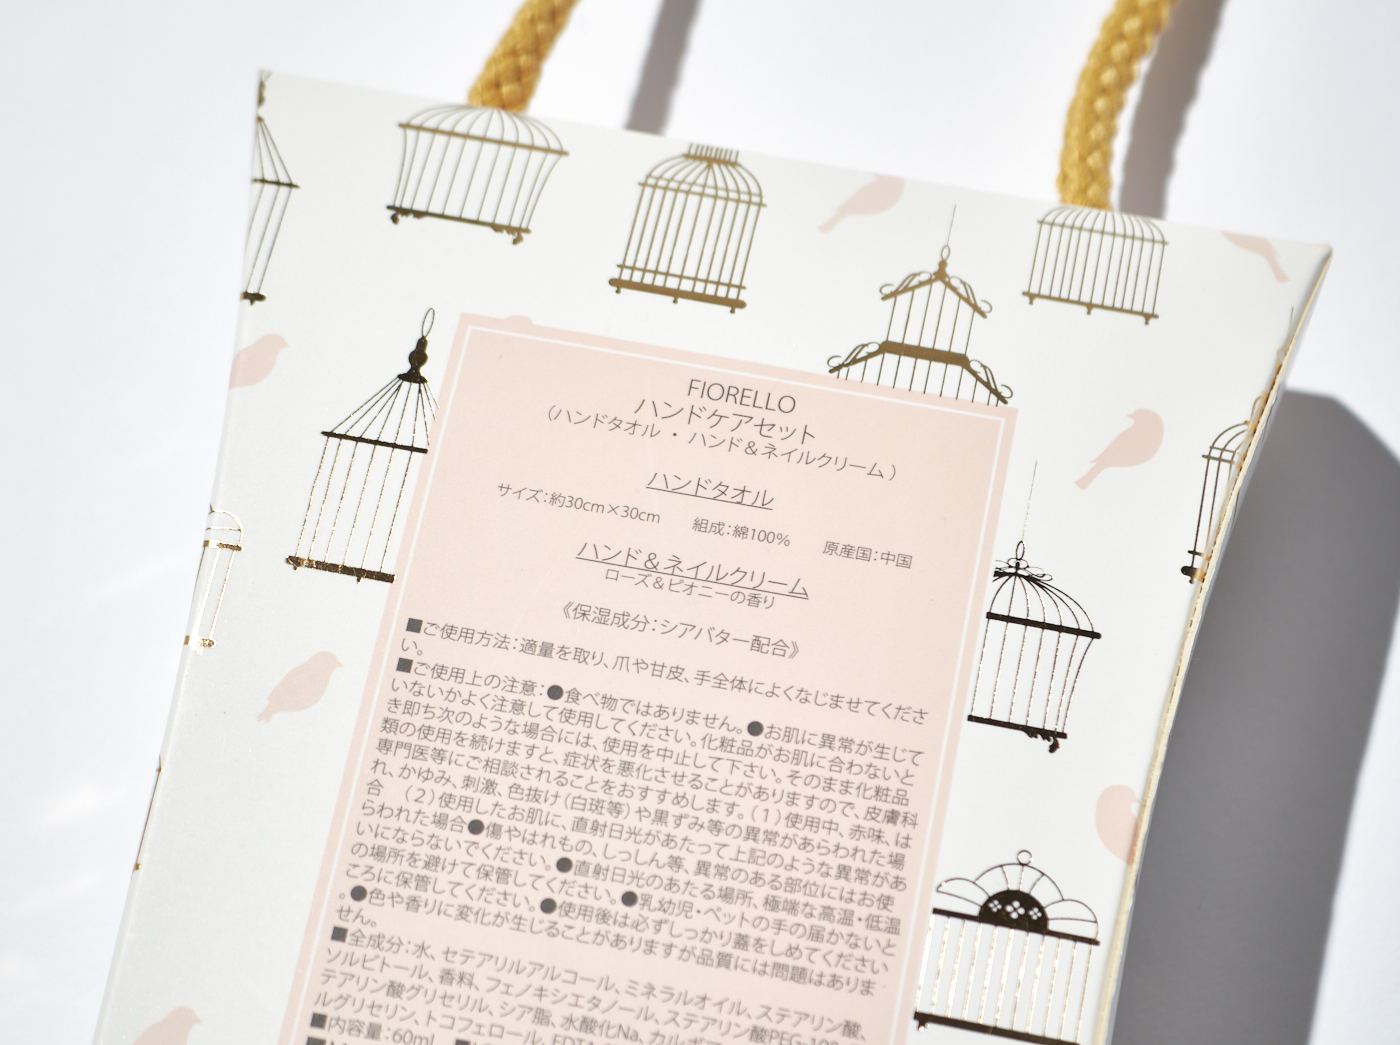 FIORELLO
ハンドケアセット
（ハンドタオル ・ ハンド＆ネイルクリーム ）
ハンドタオル
サイズ：約30cm×30cm　組成：綿100%　原産国：中国
ハンド＆ネイルクリーム
ローズ＆ピオニーの香り
《保湿成分：シアバター配合》
■ご使用方法：適量を取り、爪や甘皮、手全体によくなじませてくださ
い。
■ご使用上の注意：●食べ物ではありません。●お肌に異常が生じて
いないかよく注意して使用してください。化粧品がお肌に合わないと
き即ち次のような場合には、使用を中止して下さい。そのまま化粧品
類の使用を続けますと、症状を悪化させることがありますので、皮膚科
専門医等にご相談されることをおすすめします。（1）使用中、赤味、は
れ、かゆみ、刺激、色抜け（白斑等）や黒ずみ等の異常があらわれた場
合　（2）使用したお肌に、直射日光があたって上記のような異常があ
らわれた場合●傷やはれもの、しっしん等、異常のある部位にはお使
いにならないでください。●直射日光のあたる場所、極端な高温・低温
の場所を避けて保管してください。●乳幼児・ペットの手の届かないと
ころに保管してください。●使用後は必ずしっかり蓋をしめてください
。●色や香りに変化が生じることがありますが品質には問題はありま
せん。
■全成分：水、セテアリルアルコール、ミネラルオイル、ステアリン酸、
ソルビトール、香料、フェノキシエタノール、ステアリン酸PEG-100
テアリン酸グリセリル、シア脂、水酸化Na、カルボマ
ルグリセリン、トコフェロール、EDTA
■内容量：60ml